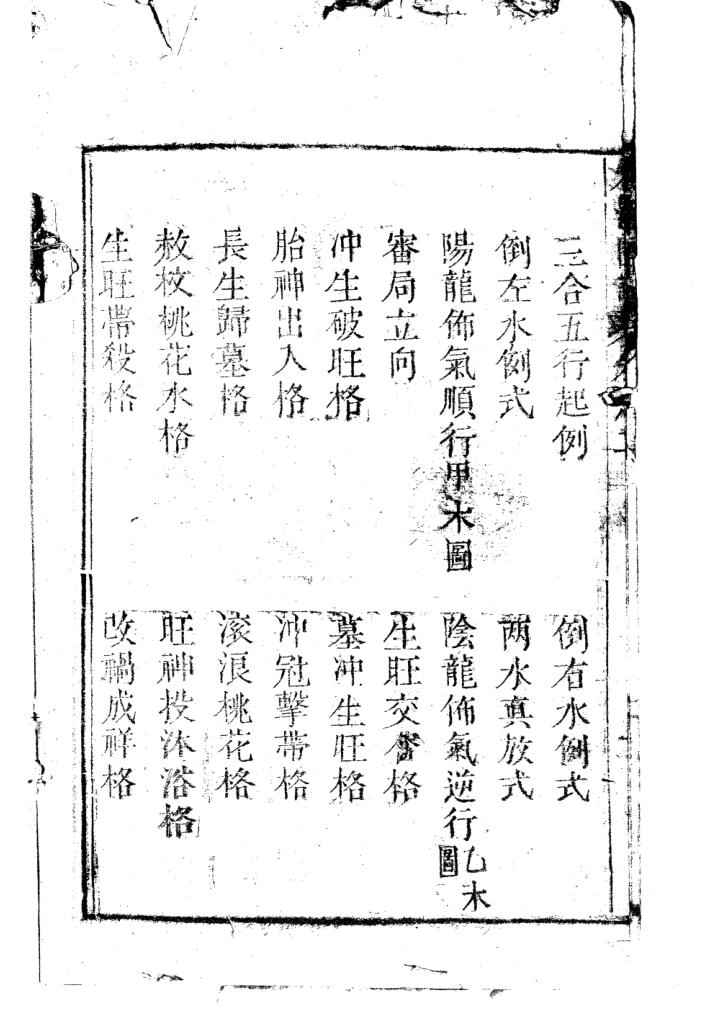 三合五行起例 倒右水倒式
倒左水倒式 两水真放式
陽龍佈氣順行甲木圖 陰龍佈氣逆行乙木圖
審局立向 生旺交會格
冲生破旺格 墓冲生旺格
胎神出入格 冲冠擊帶格
長生歸墓格 滚浪桃花格
赦文桃花水格 旺神投沐浴格
生旺帶殺格 改禍成祥格